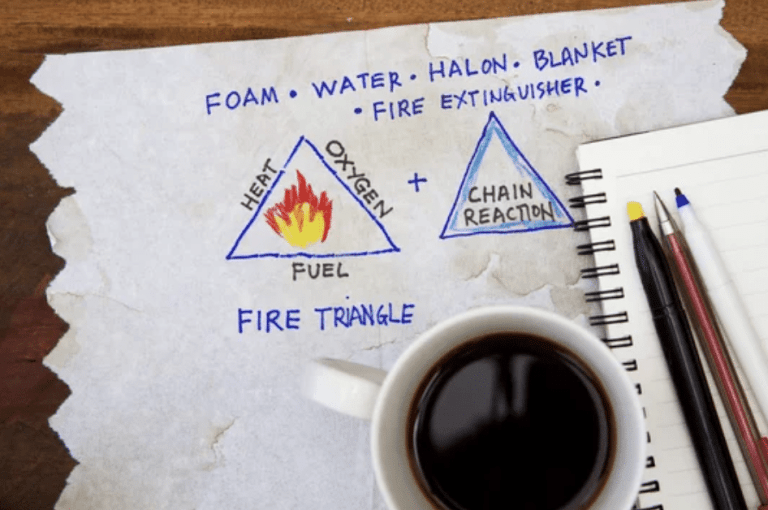 FOAM • WATER • HALON • BLANKET
• FIRE EXTINGUISHER •
HEAT
OXYGEN
FUEL
+
CHAIN
REACTION
FIRE TRIANGLE